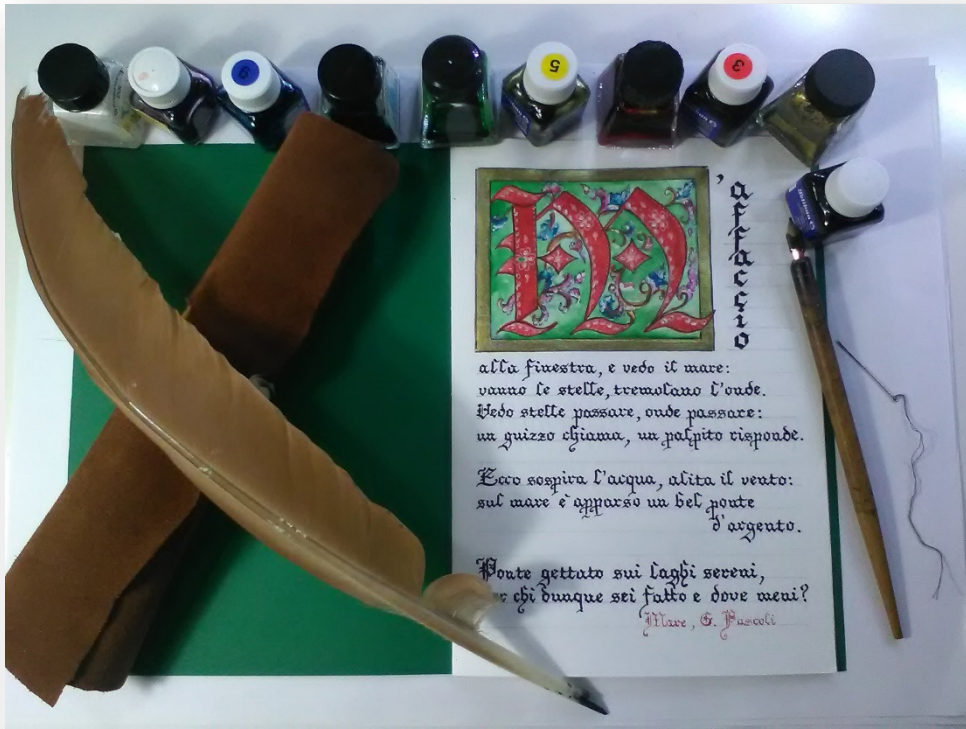 5
3
M'affaccio
alla finestra, e vedo il mare:
vanno le stelle, tremolano l'onde.
Vedo stelle passare, onde passare:
un guizzo chiama, un palpito risponde.
Ecco sospira l'acqua, alita il vento:
sul mare è apparso un bel ponte
d'argento.
Ponte gettato sui laghi sereni,
per chi dunque sei fatto e dove meni?
Mare, G. Pascoli